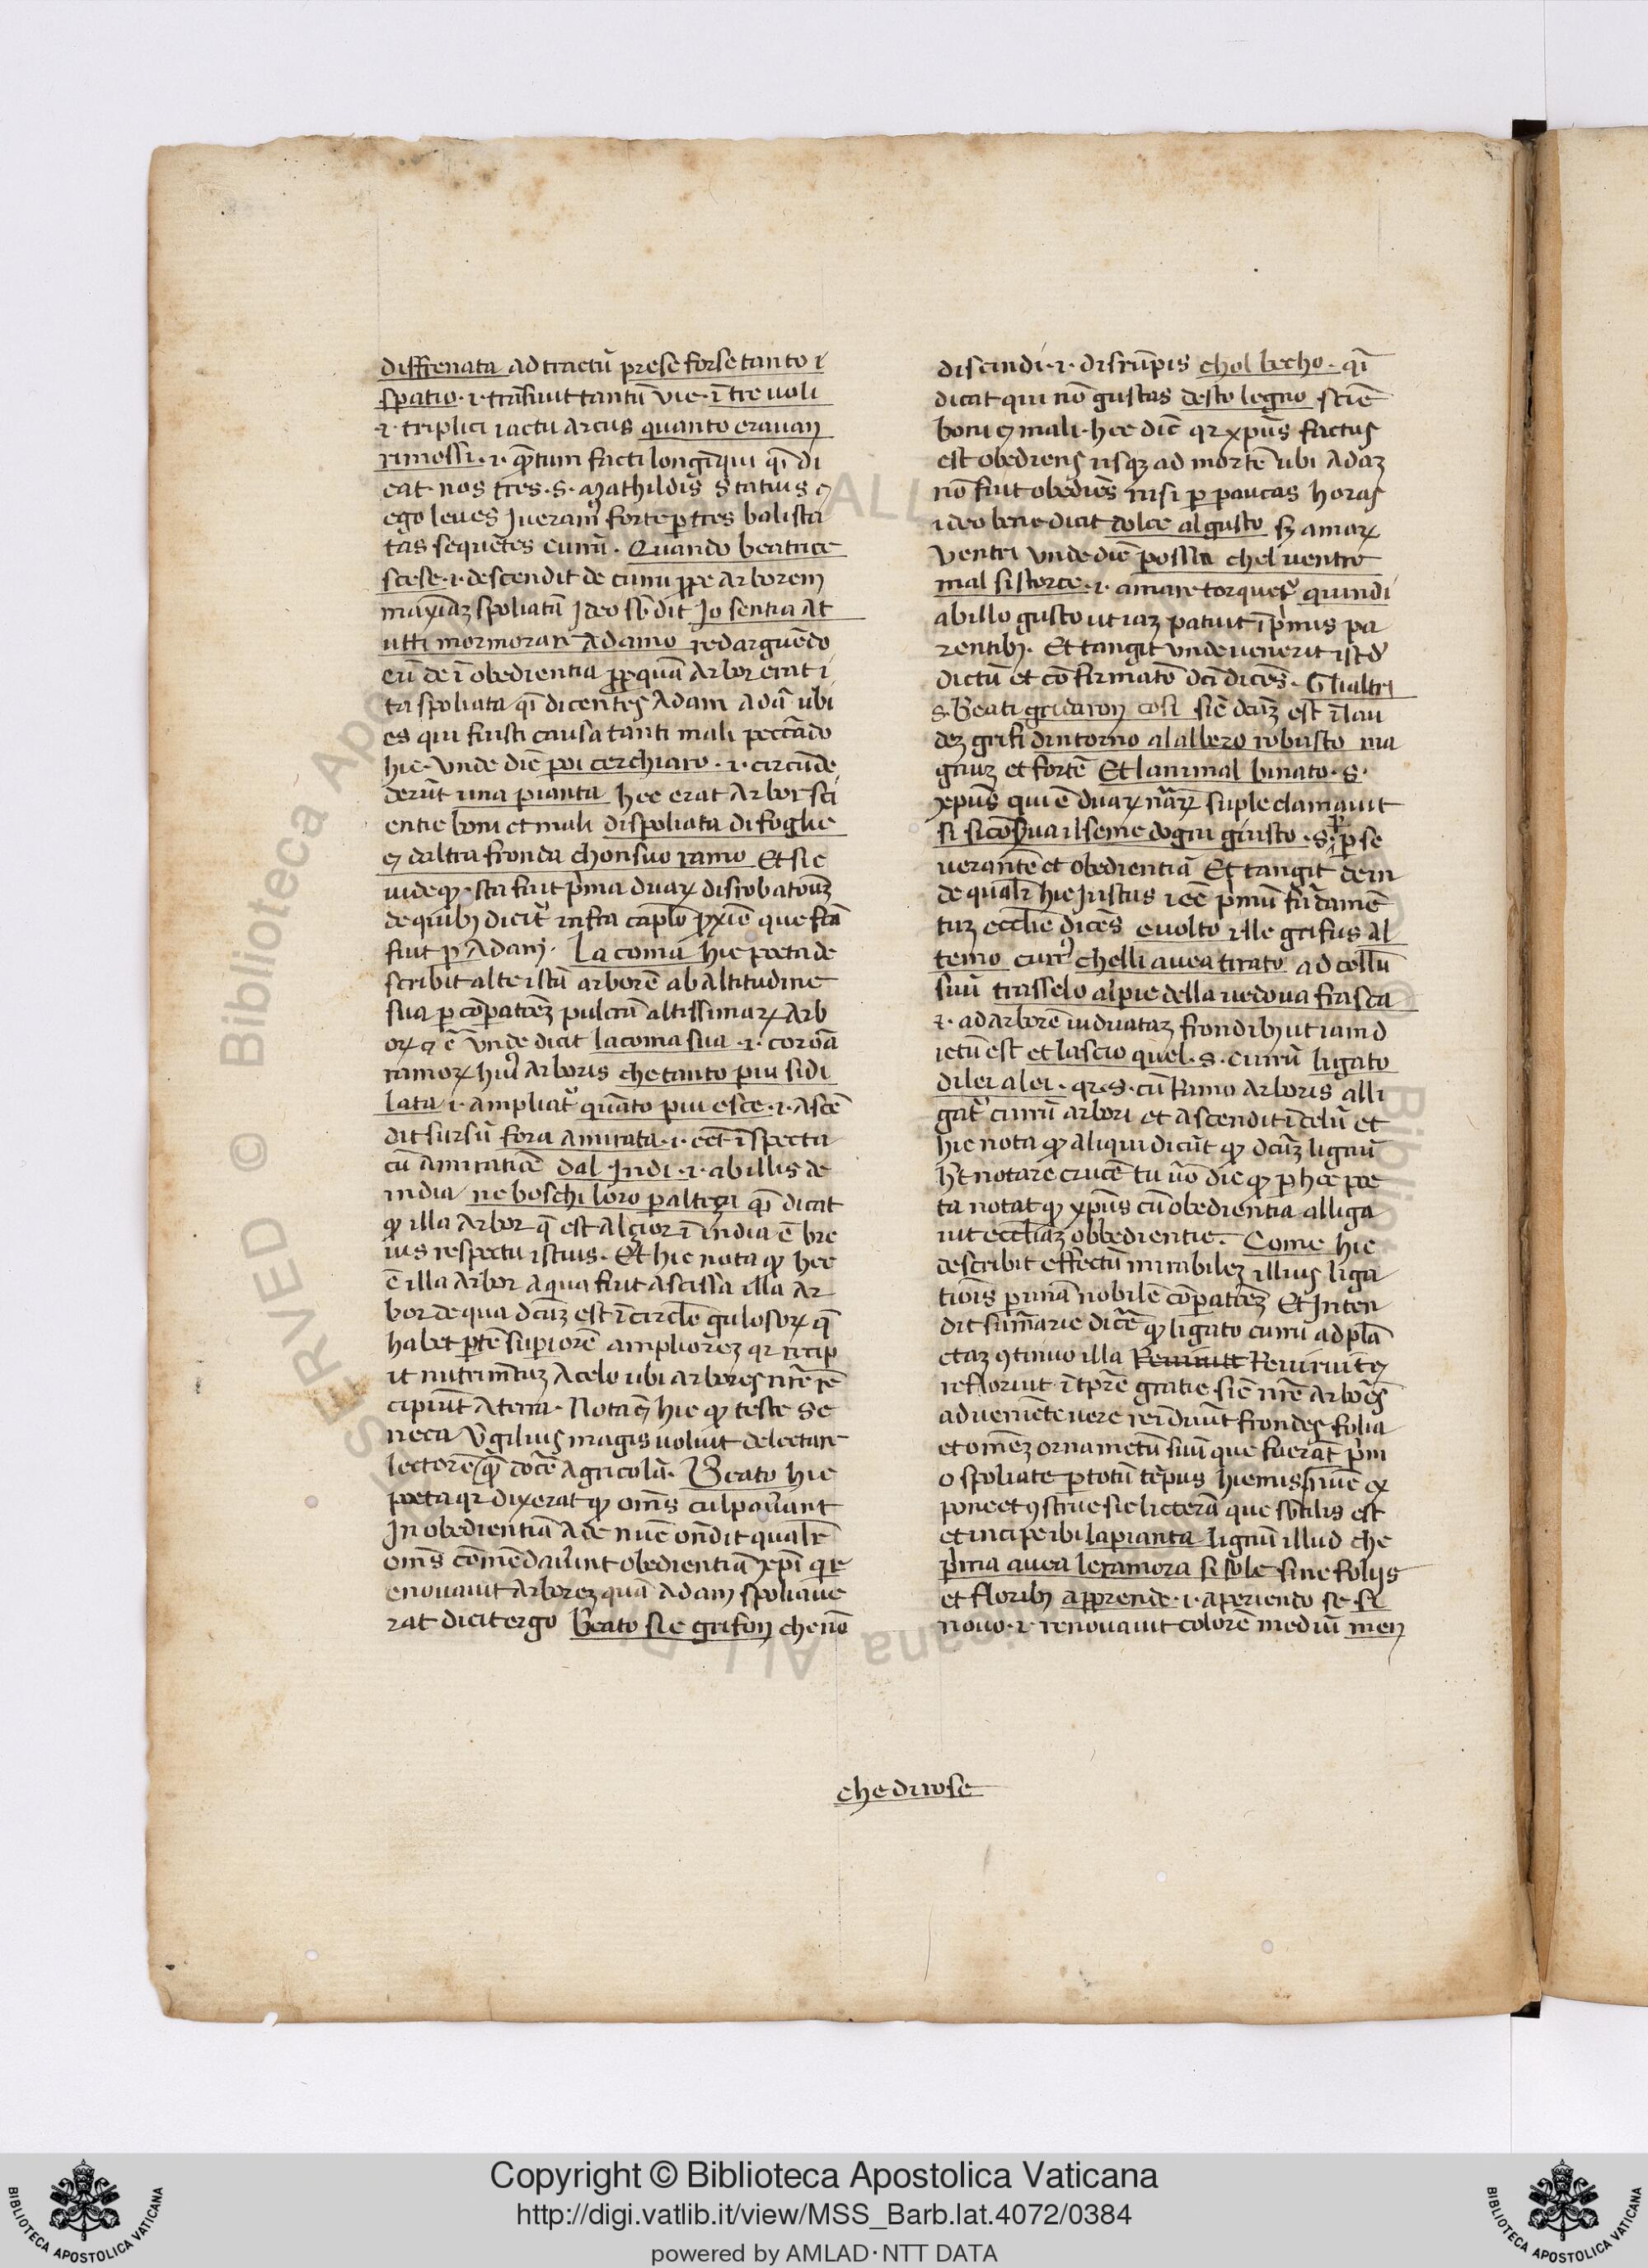 diffrenata ad tractū prese forse tanto i
spatio · i · trāsiuit tantū vie · ī tre uoli
· i · triplici iactu arcus quanto erauan
rimossi · i · q̄tum facti longīqui q̄i di
cat nos tres · s · mathildis statius ⁊
ego leues iueram᷒ forte ꝑ tres balista
tas sequētes currū · Quando beatrice
scese · i · descendit de curru ꝓpe arborem
maxīaꝫ spoliatā ideo sb̄dit Io sentia at
utti mormorare adamo redarguēdo
eū de ī obedientia ꝓpt̄ quā arbor erat i
ta spoliata q̄i dicentes adam adā ubi
es qui fuisti causa tanti mali peccādo
hic · vnde dic̄ poi cerchiaro · i · circūde
derūt una pianta hec erat arbor sci
entie boni et mali dispoliata di foglie
⁊ daltra fronda chonsuo ramo Et sic
uide ꝙ ista fuit p̄ma duaꝝ disrobationū
de quibꝫ dicit᷑ infra capl̄o ꝓxīo que fc̄a
fuit ꝑ adam · La coma hic poeta de
scribit alte istā arborē ab altitudine
sua ꝑ cōꝑatōeꝫ pulcrā altissimaꝝ arb
oꝝ q̄ ē vnde dicit la coma sua · i · coronā
ramoꝝ hui᷒ arboris che tanto piu si di
lata · i · ampliat᷑ quāto piu esce · i · ascē
dit sursū fora amirata · i · eēt īspecta
cū amiratiōe dal Indi · i · ab illis de
india ne boschi loro ꝑ alteza q̄i dicat
ꝙ illa arbor q̄ est alcior ī india ē bre
uis respectu istius · Et hic nota ꝙ hec
ē illa arbor a qua fuit ascissa illa ar
bor de qua dc̄ūꝫ est ī circlo gulosoꝝ q̄
habet ꝑtē suꝑiorē ampliorēꝫ qꝛ recip
it nutrimt̄uꝫ a celo ubi arbores nr̄e re
cipiūt a terra · Nota ⁊ hic ꝙ teste se
neca Vꝰgilius magis uoluit delectare
lectorē q̄ docē agricolā · Beato hic
poeta qꝛ dixerat ꝙ oms̄ culpauerant
In obedientiā ade nūc ondit qualr̄
oms̄ cōmēdauerunt obedientiā xp̄i qi r
enouauit arboreꝫ quā adam spoliaue
rat dicit ergo Beato sie grifon che nō
discindi · i · disrūpis chol becho · q̄i
dicat qui nō gustas desto legno sciē
boni ⁊ mali · hec dic̄ qꝛ xp̄us factus
est obediens usqꝫ ad mortē ubi adaꝫ
nō fuit obediēs nisi ꝑ paucas horas
ideo bene dicit dolce al gusto sꝫ amaꝝ
ventri vnde dic̄ poscia chel uentre
mal si storce · i · amare torquet᷑ quindi
ab illo gusto ut iaꝫ patuit ī p̄mis pa
rentibꝫ · Et tangit unde uenerit istd̄
dictū et cōfirmatō dc̄i dicēs · Gli altri
s · Beati gridaron cosi sic̄ dc̄ūꝫ est ī lau
deꝫ grifi dintorno al albero robusto ma
gnuꝫ et fortē Et lanimal binato · s ·
xp̄us qui ē duaꝝ nāꝝ suple clamauit
si si cōserua il seme dogni giusto · s · ꝑ ꝑse
uerantē et obedientiā Et tangit dein
de qualr̄ hic iustus iecē p̄mū fūdamē
tuꝫ ecclie dicēs e uolto ille grifus al
temo curr᷒ chelli auea tirato ad celū
suū trasselo al pie della uedoua frasca
· i · ad arborē uiduataꝫ frondibꝫ ut iam d
ictū est et lascio quel · s · currū ligato
di lei a lei · qꝛ · s · cū ramo arboris alli
gat᷑ currū arbori et ascendit ī celū et
hic nota ꝙ aliqui dicūt ꝙ dc̄ūꝫ lignū
ht̄ notare crucē tu ūo dic ꝙ ꝑ hec poe
ta notat ꝙ xp̄us cū obedientia alliga
uit eccliaꝫ obbedientie · Come hic
describit effectū mirabileꝫ illius liga
tiōis ꝑ unā nobilē cōꝑatōeꝫ Et Inten
dit sūmarie dicē̄ ꝙ ligato curru ad plā
ctaꝫ ꝯtinuo illa Reuiruit Reuiruit ⁊
refloruit ī tpr̄e gratie sic̄ nr̄e arbōes
adueniēte uere reīduūt frondes folia
et omēꝫ ornamētū suū que fuerāt p̄m
o spoliate ꝑ totū tēpus hiemis nūc ex
pone et ꝯstrue sic licterā que sb̄tilis est
et incipe ibi la pianta lignū illud che
p̄ma auea le ramora si sole sine folijs
et floribꝫ apprende · i · aperiendo se si
nouo · i · renouauit colorē mediū men
che di rose
Copyright © Biblioteca Apostolica Vaticana
http://digi.vatlib.it/view/MSS_Barb.lat.4072/0384
powered by AMLAD · NTT DATA
BIBLIOTECA APOSTOLICA VATICANA
BIBLIOTECA APOSTOLICA VATICANA